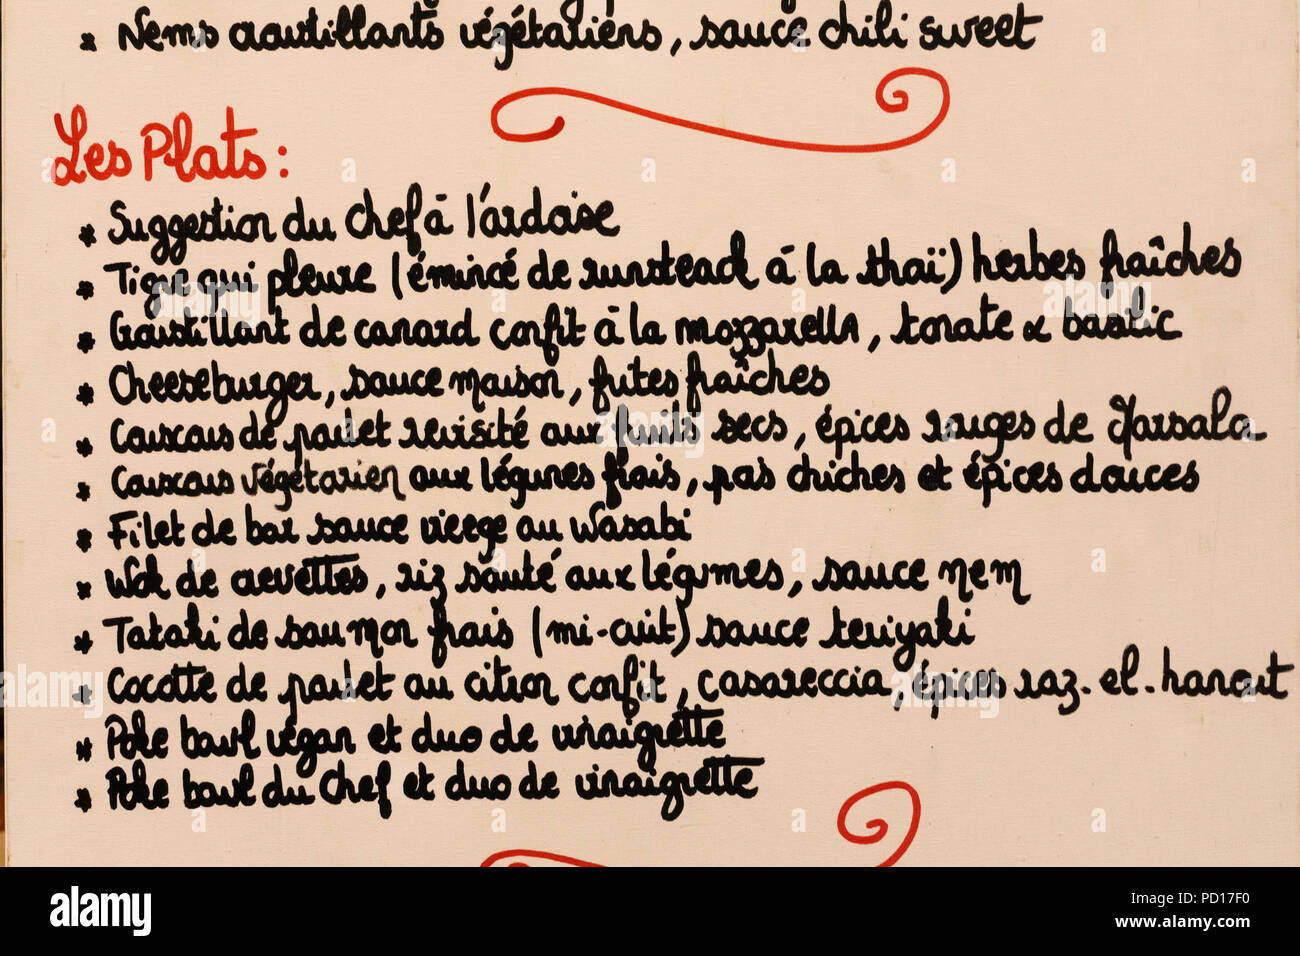 * Nems croustillants végétariens, sauce chili sweet
Les Plats :
* Suggestion du Chef à l'ardoise
* Tigre qui pleure (émincé de rumsteack à la thaï) herbes fraîches
* Croustillant de canard confit à la mozzarella, tomate & basilic
* Cheeseburger, sauce maison, frites fraîches
* Couscous de poulet revisité aux fruits secs, épices rouges de Marsala
* Couscous végétarien aux légumes frais, pois chiches et épices douces
* Filet de bar sauce vierge au wasabi
* Wok de crevettes, riz sauté aux légumes, sauce nem
* Tataki de saumon frais (mi-cuit) sauce teriyaki
* Cocotte de poulet au citron confit, casareccia, épices raz-el-hanout
* Poke bowl végan et duo de vinaigrette
* Poke bowl du Chef et duo de vinaigrette
alamy
Image ID: PD17F0
www.alamy.com